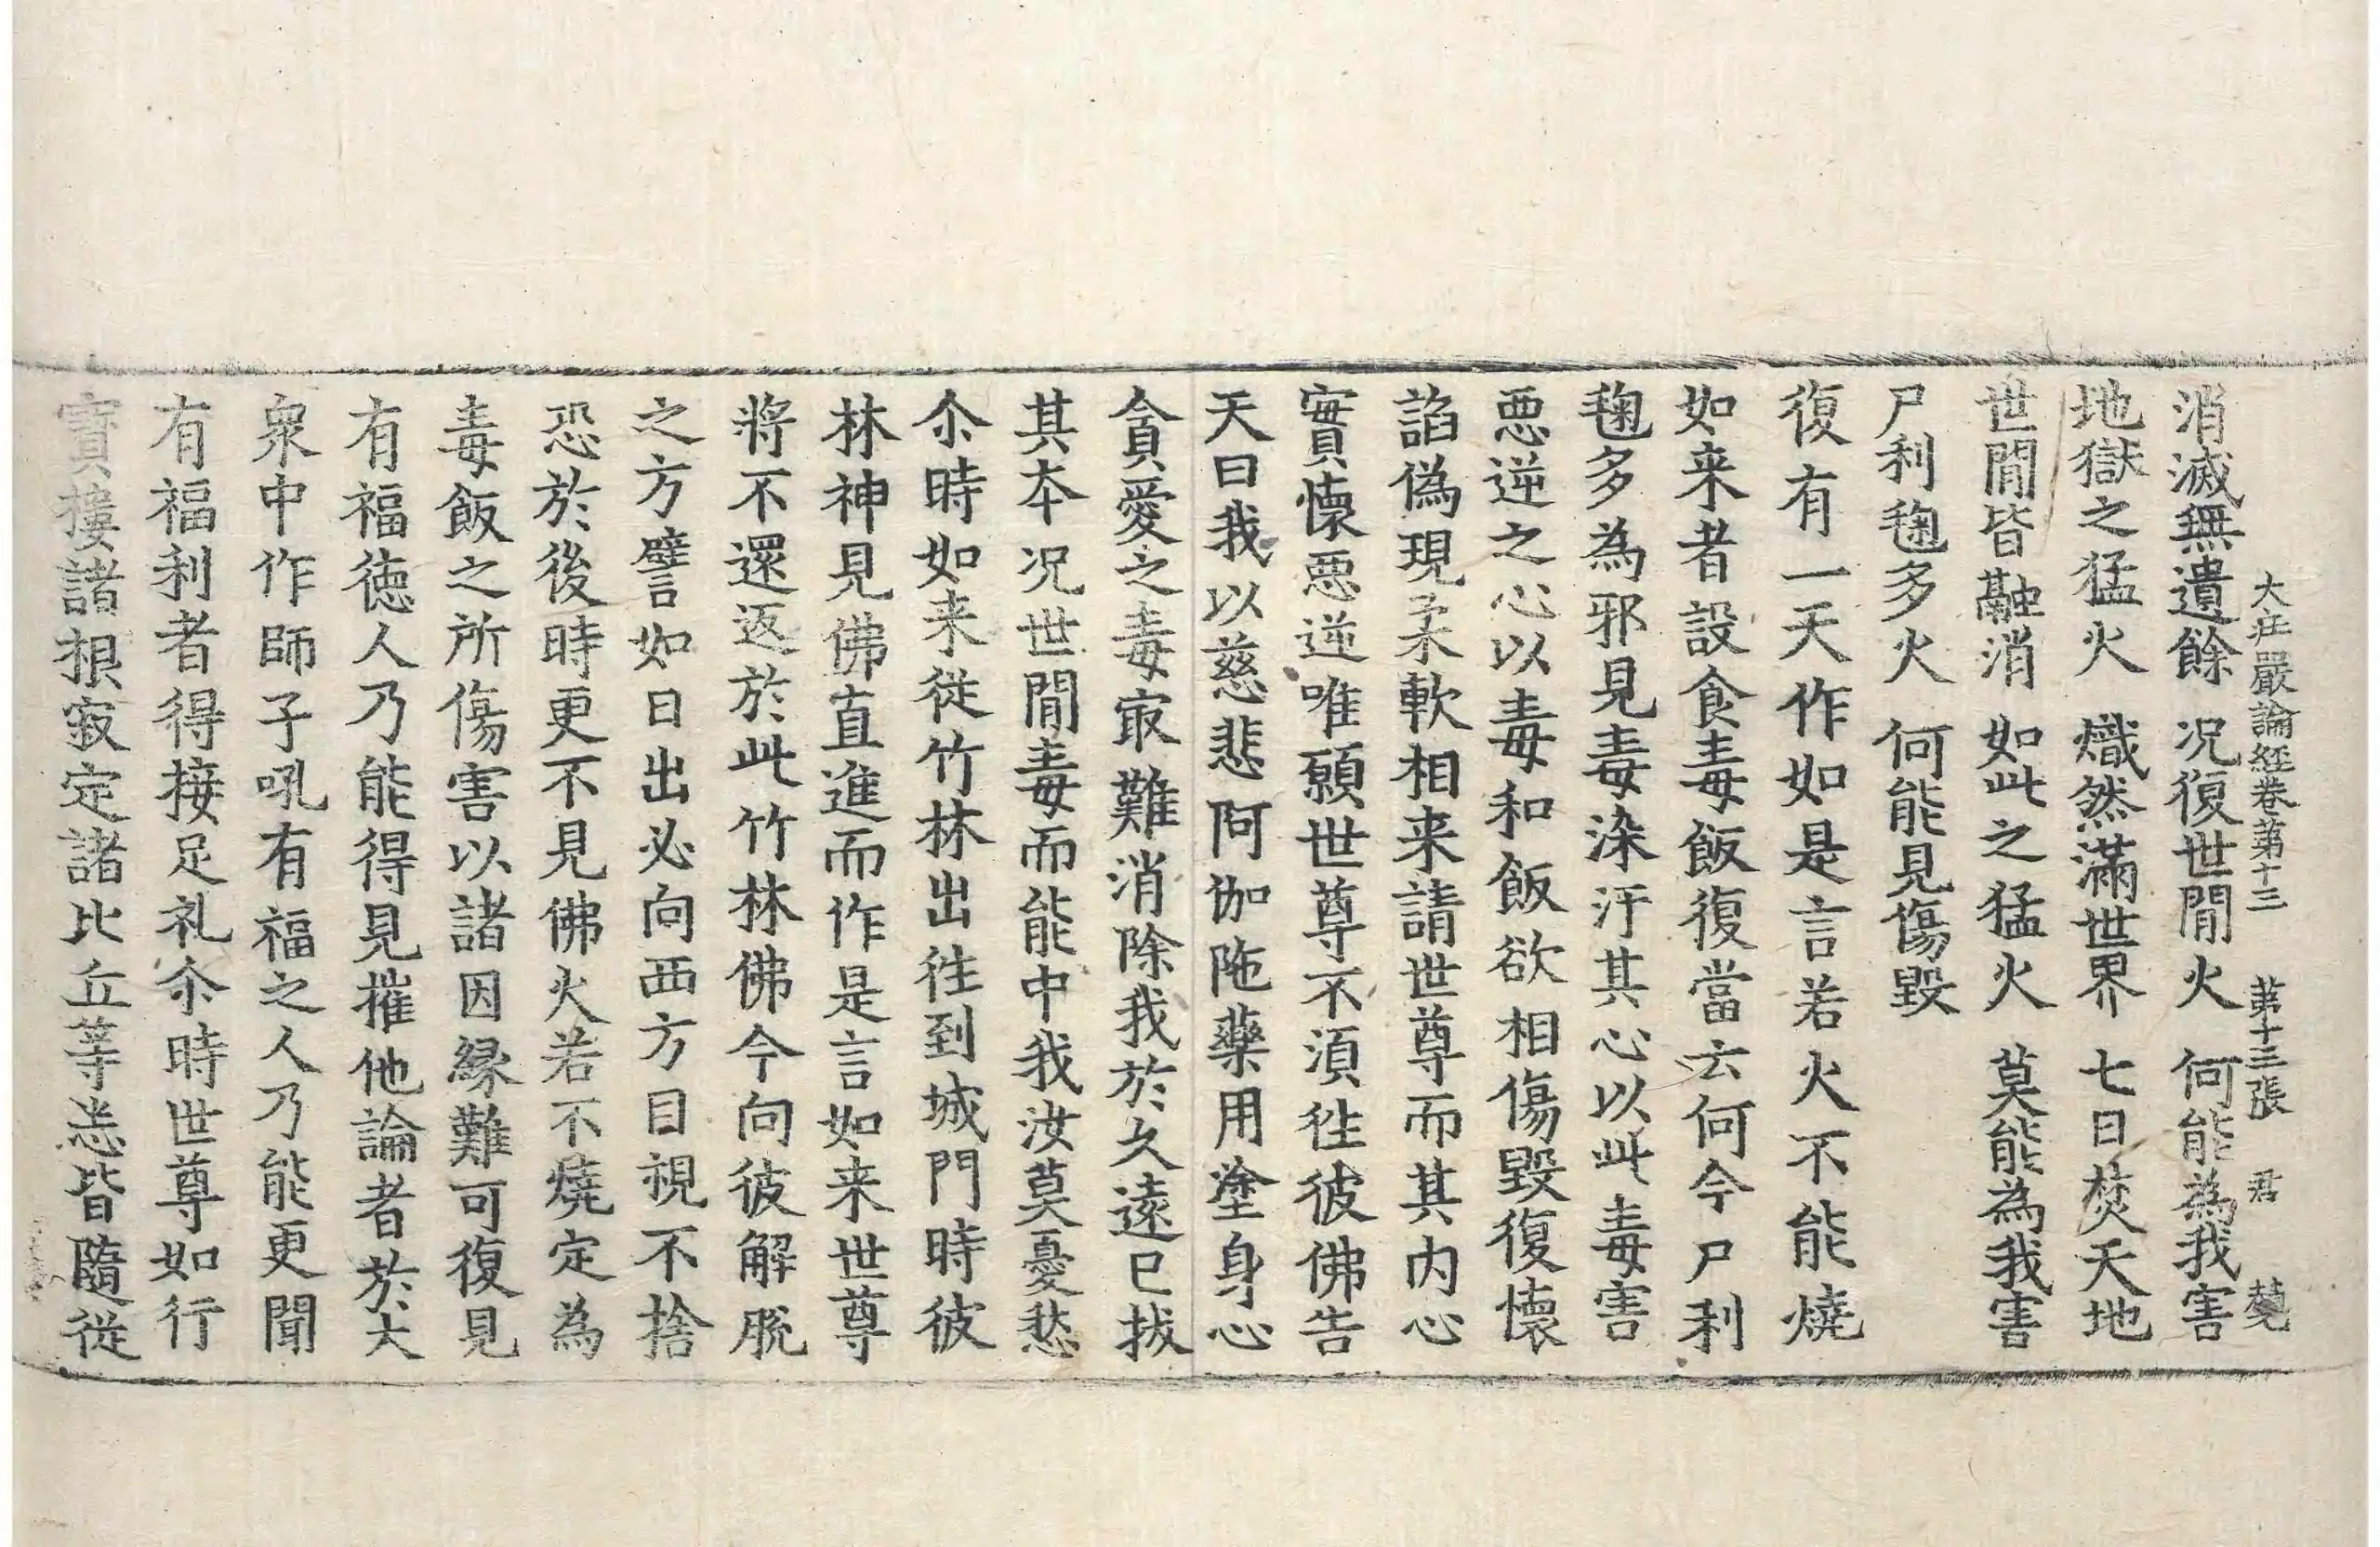 大庄嚴論經卷第十三　第十三張　君
消滅無遺餘　況復世閒火　何能為我害
地獄之猛火　熾然滿世界　七日焚天地
世閒皆融消　如此之猛火　莫能為我害
尸利毱多火　何能見傷毀
復有一天作如是言若火不能燒
如来者設食毒飯復當云何今尸利
毱多為邪見毒染汙其心以此毒害
惡逆之心以毒和飯欲相傷毀復懷
諂偽現柔軟相来請世尊而其内心
實懷惡逆唯願世尊不湏徃彼佛告
天曰我以慈悲阿伽陁藥用塗身心
貪愛之毒㝡難消除我於久遠已拔
其本況世閒毒而能中我汝莫憂愁
尒時如来從竹林出徃到城門時彼
林神見佛直進而作是言如来世尊
將不還返於此竹林佛今向彼解脫
之方譬如日出必向西方目視不捨
恐於後時更不見佛火若不燒定為
毒飯之所傷害以諸因緣難可復見
有福德人乃能得見摧他論者於大
衆中作師子吼有福之人乃能更聞
有福利者得接足礼尒時世尊如行
寶樓諸根寂定諸比丘等悉皆隨從